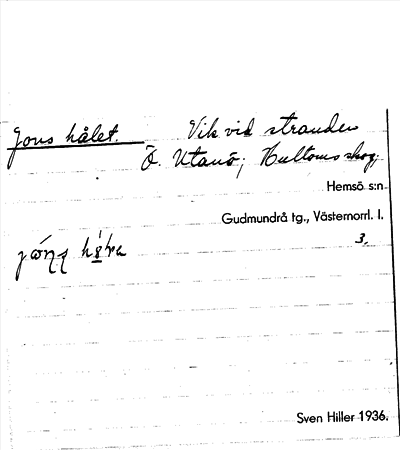 Jons hålet. Vik vid stranden
Ö. Utanö; Hultoms skog.
Hemsö s:n
Gudmundrå tg., Västernorrl. l.
3.
Sven Hiller 1936.